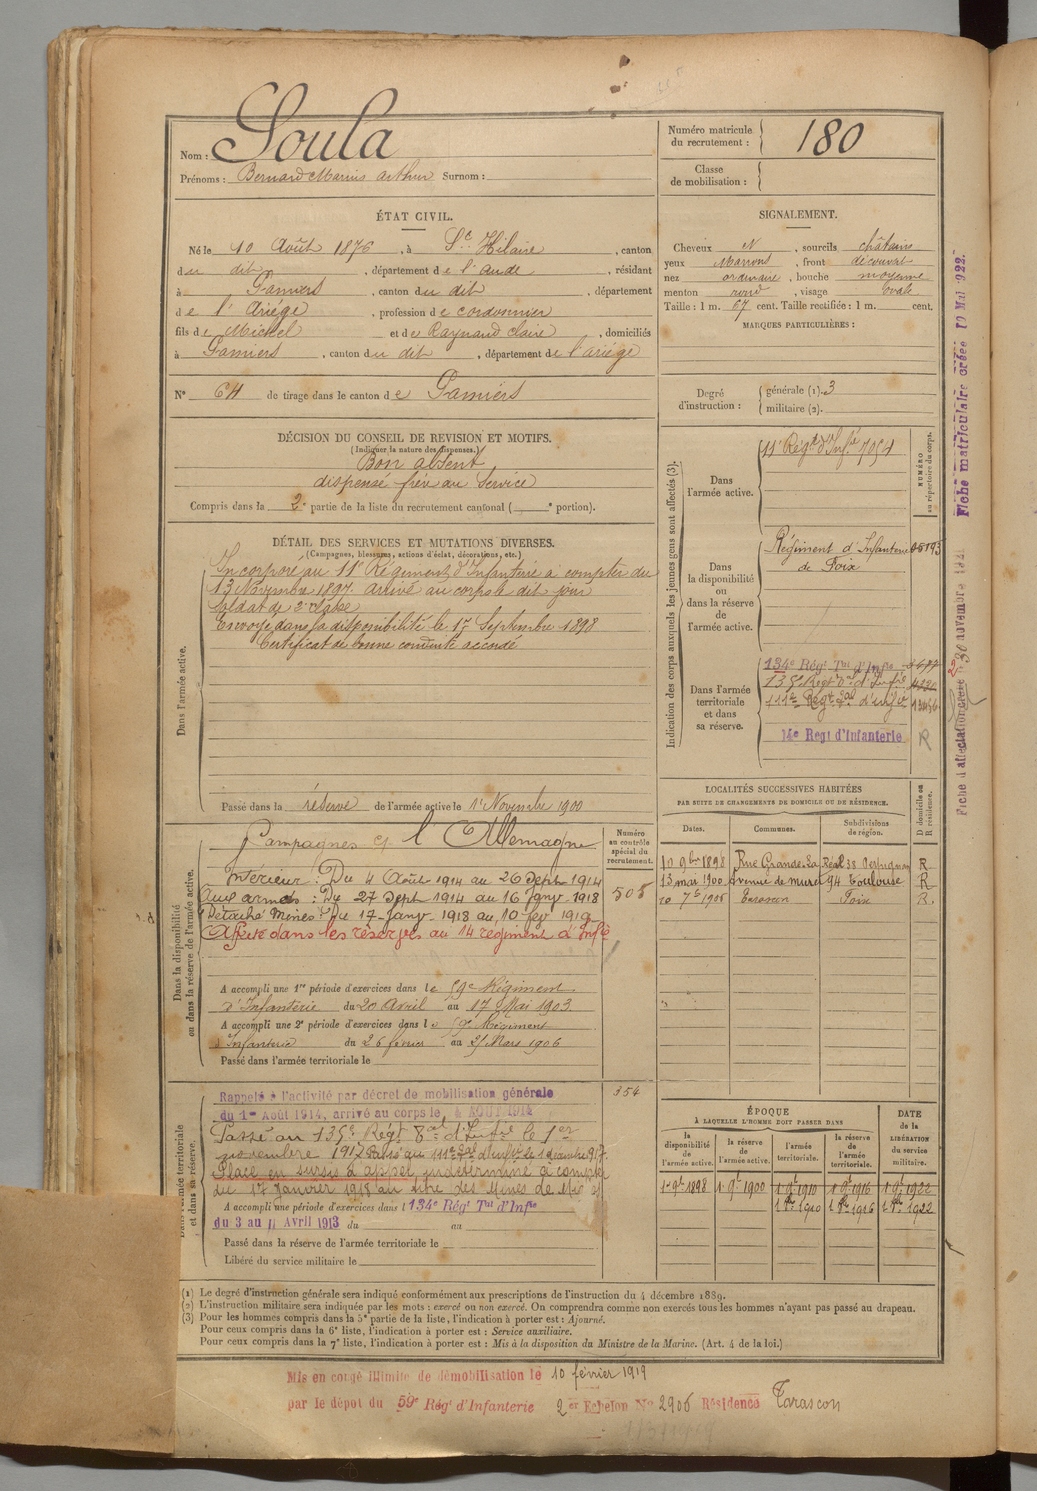 Nom : Soula
Prénoms : Bernard Marius Arthur Surnom :
Numéro matricule du recrutement : 180
Classe de mobilisation :
ÉTAT CIVIL.
Né le 10 Août 1876, à St Hilaire, canton
du dit, département de l'Aude, résidant
à Pamiers, canton du dit, département
de l'Ariége, profession de cordonnier
fils de Michel et de Raynaud Claire, domiciliés
à Pamiers, canton du dit, département de l'ariége
N° 64 de tirage dans le canton de Pamiers
SIGNALEMENT.
Cheveux N, sourcils châtains
yeux Marrons, front découvert
nez ordinaire, bouche moyenne
menton rond, visage ovale
Taille : 1 m. 67 cent. Taille rectifiée : 1 m. cent.
MARQUES PARTICULIÈRES :
Degré d'instruction : générale (1). 3
militaire (2).
DÉCISION DU CONSEIL DE REVISION ET MOTIFS.
(Indiquer la nature des dispenses.)
Bon absent
dispensé frère au Service
Compris dans la 2e partie de la liste du recrutement cantonal ( e portion).
DÉTAIL DES SERVICES ET MUTATIONS DIVERSES.
(Campagnes, blessures, actions d'éclat, décorations, etc.)
Dans l'armée active.
Incorporé au 11e Régiment d'Infanterie à compter du
13 Novembre 1897. Arrivé au corps le dit jour
Soldat de 2e classe
Envoyé dans la disponibilité le 17 Septembre 1898
Certificat de bonne conduite accordé
Passé dans la réserve de l'armée active le 1er Novembre 1900
Indication des corps auxquels les jeunes gens sont affectés (3).
NUMÉRO au répertoire du corps.
Dans l'armée active.
11e Régt d'Infie 7054
Dans la disponibilité ou dans la réserve de l'armée active.
Régiment d'Infanterie
de Foix
Dans l'armée territoriale et dans sa réserve.
134e Régt Tal d'Infie
135e Régt Tal d'Infie
111e Régt Tal d'infie
14e Regt d'Infanterie R
Fiche matriculaire créée 10 Mai 1922.
Dans la disponibilité ou dans la réserve de l'armée active.
Numéro au contrôle spécial du recrutement.
Campagnes c/ l'Allemagne
Intérieur : Du 4 Août 1914 au 26 Sept 1914
Aux armées : Du 27 Sept 1914 au 16 Janv 1918
Détaché Mines : Du 17 Janv 1918 au 10 fev 1919
Affecté dans les réserves au 14 regiment d'Infie
505
A accompli une 1re période d'exercices dans le 59e Régiment
d'Infanterie du 20 Avril au 17 Mai 1903
A accompli une 2e période d'exercices dans le 59e Régiment
d'Infanterie du 26 février au 25 Mars 1906
Passé dans l'armée territoriale le
LOCALITÉS SUCCESSIVES HABITÉES
PAR SUITE DE CHANGEMENTS DE DOMICILE OU DE RÉSIDENCE.
Dates. Communes. Subdivisions de région. D domicile ou R résidence.
10 9bre 1898 Rue Grande la Réal 38 Perpignan R
13 mai 1900 Avenue de Muret 94 Toulouse R
7bre 1908 Tarascon Foix R.
Dans l'armée territoriale et dans sa réserve.
Rappelé à l'activité par décret de mobilisation générale
du 1er Août 1914, arrivé au corps le 4 AOUT 1914
354
Passé au 135e Régt Tal d'Infie le 1er
novembre 1917 Passé au 111e Tal d'infie le 1 décembre 1917.
Placé en sursis d'appel indéterminé à compter
du 17 Janvier 1918 au titre des Mines de
A accompli une période d'exercices dans l 134e Régt Tal d'Infie
du 3 au 11 Avril 1913 du au
Passé dans la réserve de l'armée territoriale le
Libéré du service militaire le
ÉPOQUE
À LAQUELLE L'HOMME DOIT PASSER DANS
la disponibilité de l'armée active. la réserve de l'armée active. l'armée territoriale. la réserve de l'armée territoriale.
DATE de la LIBÉRATION du service militaire.
1 9bre 1898 1 9bre 1900 1 9bre 1910 1 9bre 1916 1 9bre 1922
1 8bre 1910 1 8bre 1916 1 8bre 1922
(1) Le degré d'instruction générale sera indiqué conformément aux prescriptions de l'instruction du 4 décembre 1889.
(2) L'instruction militaire sera indiquée par les mots : exercé ou non exercé. On comprendra comme non exercés tous les hommes n'ayant pas passé au drapeau.
(3) Pour les hommes compris dans la 5e partie de la liste, l'indication à porter est : Ajourné.
Pour ceux compris dans la 6e liste, l'indication à porter est : Service auxiliaire.
Pour ceux compris dans la 7e liste, l'indication à porter est : Mis à la disposition du Ministre de la Marine. (Art. 4 de la loi.)
Mis en congé illimité de démobilisation le 10 février 1919
par le dépot du 59e Régt d'Infanterie 2er Echelon No 2906 Résidence Tarascon